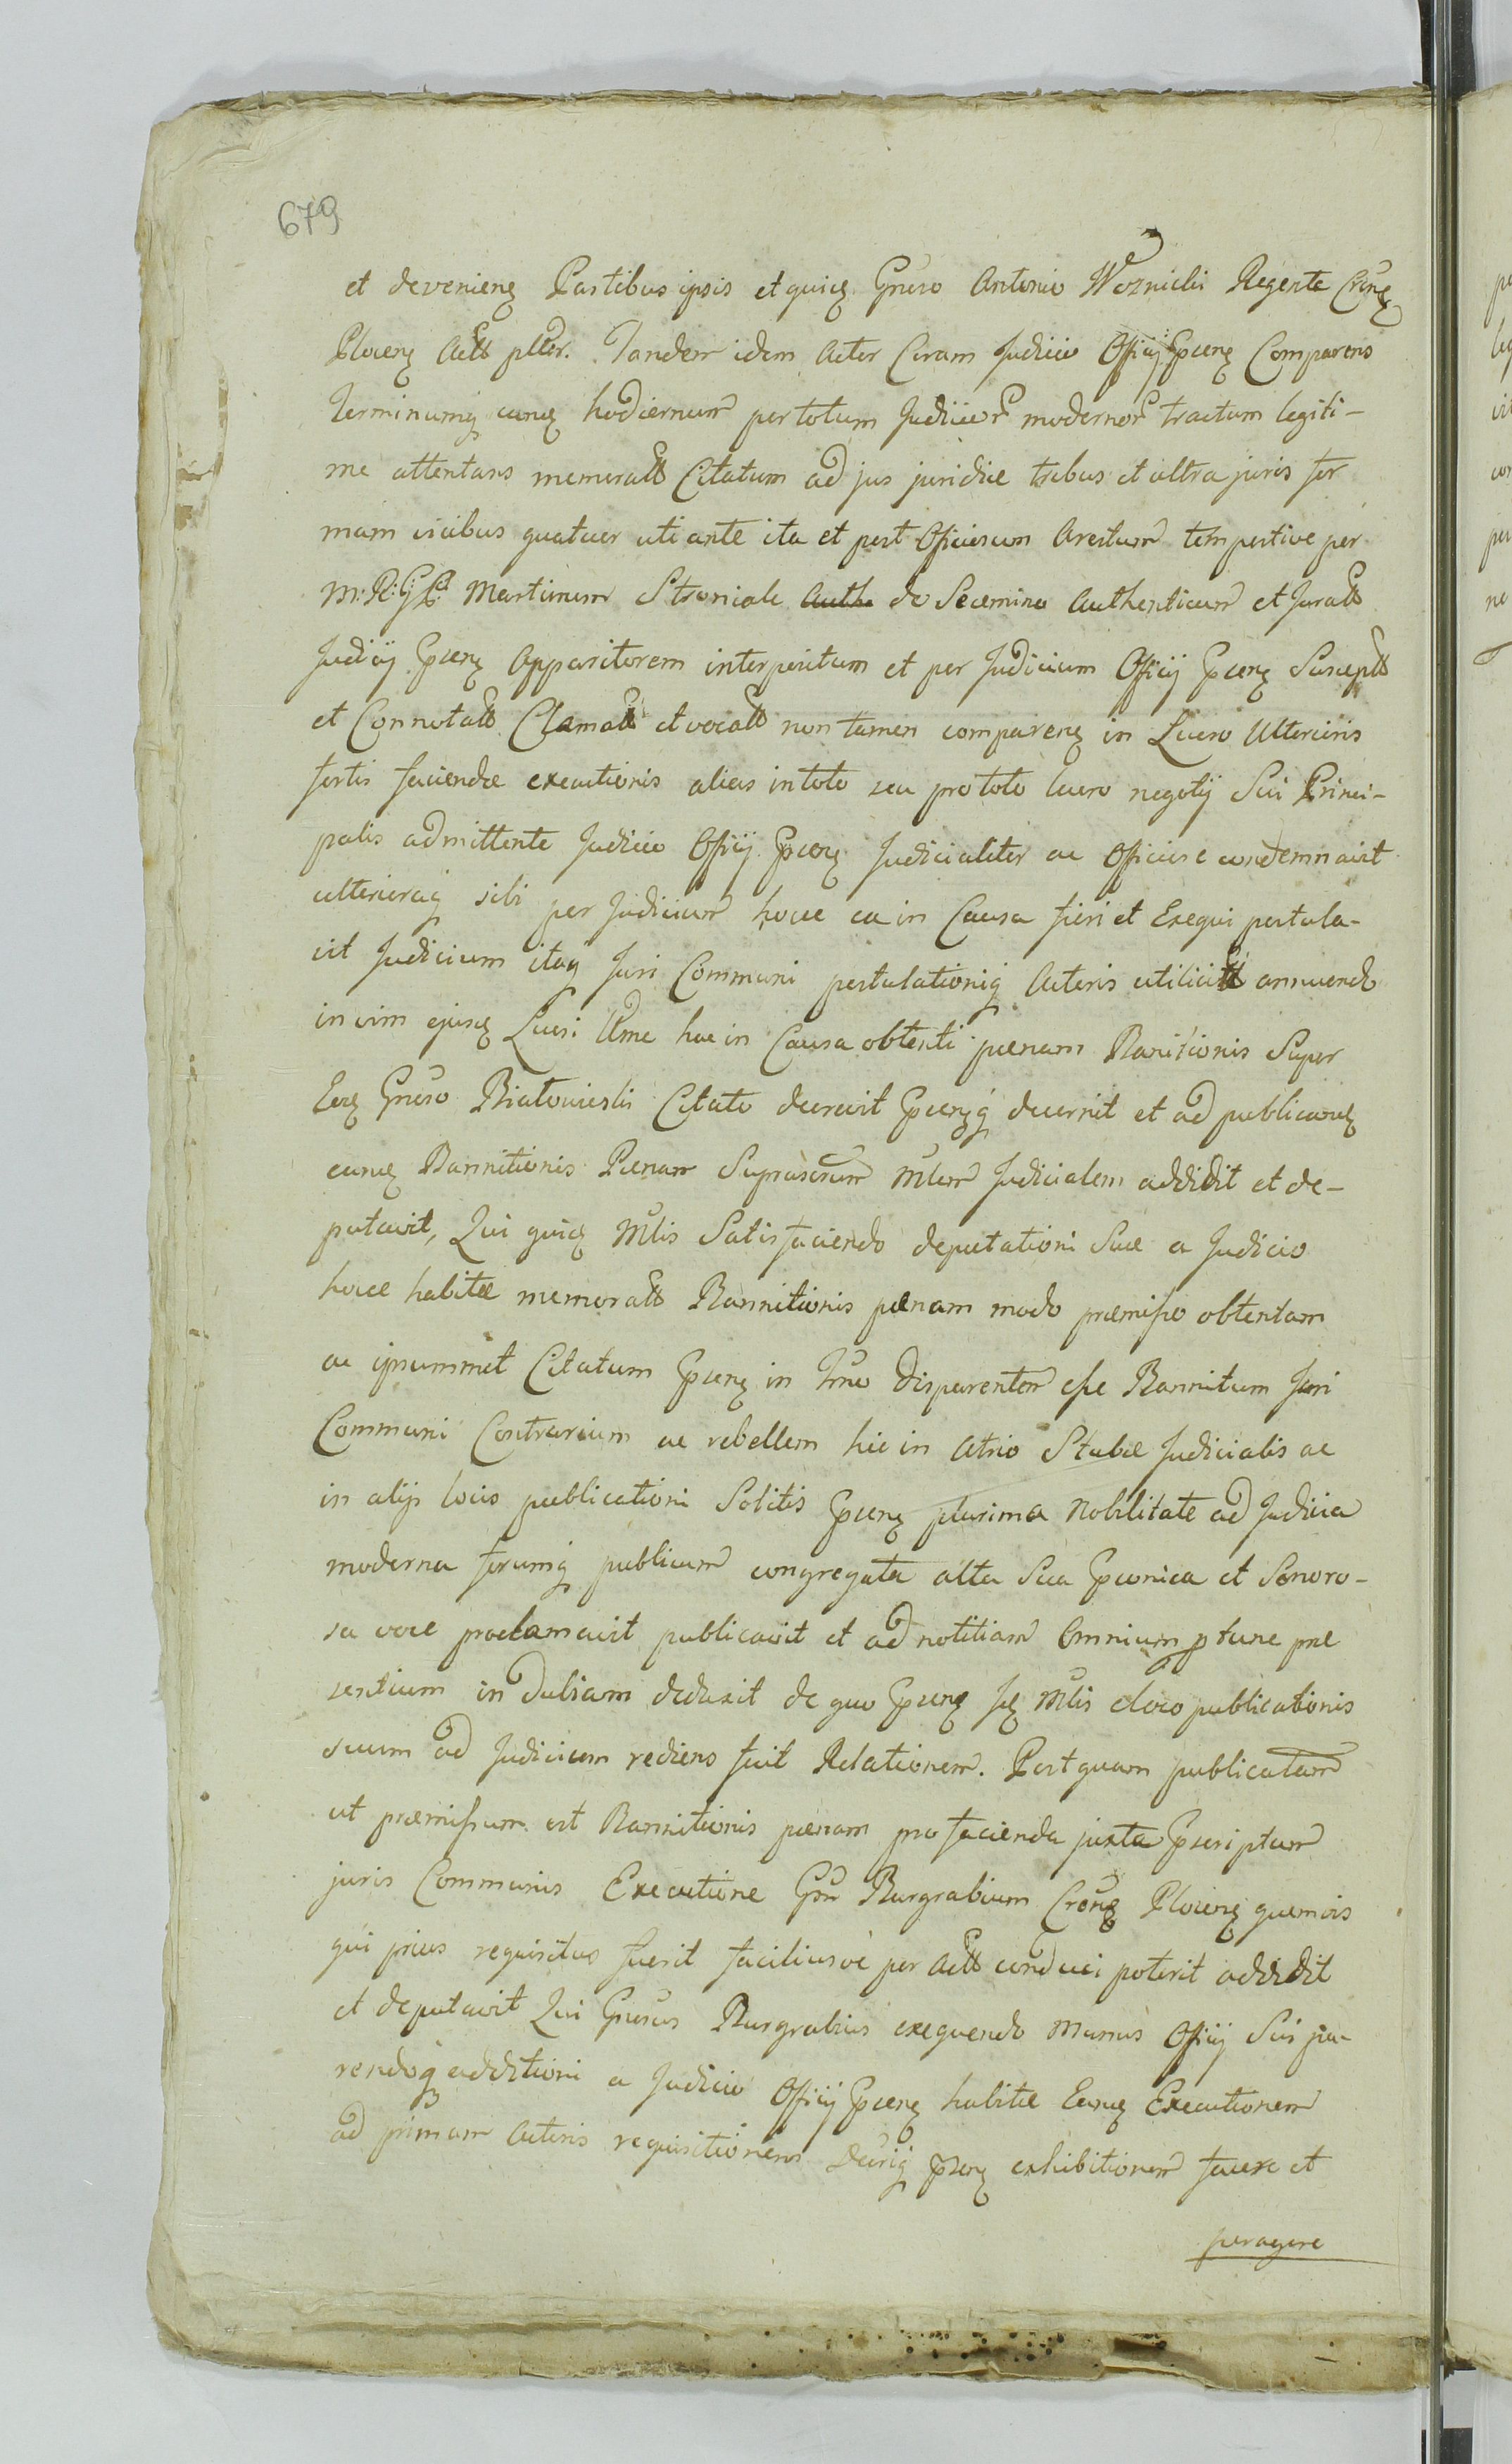 679
et devenienz Partibus ipsis et quisq Gnroso Antonio Woznicki Regente Crnz
Plocenz Actt pltor. Tandem idem Actor Coram Judicio Officij Prnz Comparens
Terminumq eunq hodiernum per totum Judicior modernor tractum legiti-
me attentans memoratt Citatum ad jus juridice tribus et ultra juris for
mam vicibus quatuor uti ante ita et post Officiosum Arestum tempestive per
M: R: G: Martinum Stroniale de Secemino Authenticum et Juratt
Judicij Prnz Apparitorem interpositum et per Judicium Officij Prnz Suscептt
et Connotatt Clamatt et vocatt non tamen comparenz in Lucro Ulterioris
fortis faciendæ executionis alias in toto seu pro toto lucro negotij Sui Princi-
palis admittente Judicio Officij Prnz Judicialiter ac Officiose condemnavit
ulterioraq sibi per Judicium hocce ea in Causa fieri et Exequi postula-
vit Judicium itaq Juri Communi postulationiq Actoris annuendo
in vim ejusq Lucri Ultme hac in Causa obtenti pœnam Banitionis Super
Eoq Gnroso Białowieski Citato decrevit Prnzq decernit et ad publicanq
eanq Bannitionis Pœnam Suprascrum Mlem Judicialem addidit et de-
putavit, Qui quisq Mlis Satisfaciendo deputationi Suæ a Judicio
hocce habitæ memoratt Bannitionis pœnam modo præmisso obtentam
ac ipsummet Citatum Prnz in Trno Disparentem esse Bannitum Juri
Communi Contrarium ac rebellem hic in Atrio Stubæ Judicialis ac
in alijs locis publicationi Solitis Prnz plurima Nobilitate ad Judicia
moderna forumq publicum congregata alta Sua Prconica et Sonoro-
sa voce proclamavit publicavit et ad notitiam Omnium p tunc præ
sentium indubiam deduxit de quo Prnz Mlis eloco publicationis
suum ad Judicium rediens fecit Relationem. Post quam publicatam
ut præmissum est Bannitionis pœnam pro facienda juxta Prscriptum
juris Communis Executione Gsm Burgrabium Crenz Plocenz quemvis
qui prius requisitus fuerit faciliusve per Actt conduci poterit addidit
et deputavit Qui Gnrosus Burgrabius exequendo Munus Officij Sui pa-
rendoq additioni a Judicio Officij Prnz habitæ Eanq Executionem
ad primam Actoris requisitionem Decriq Prnz exhibitionem facere et
peragere